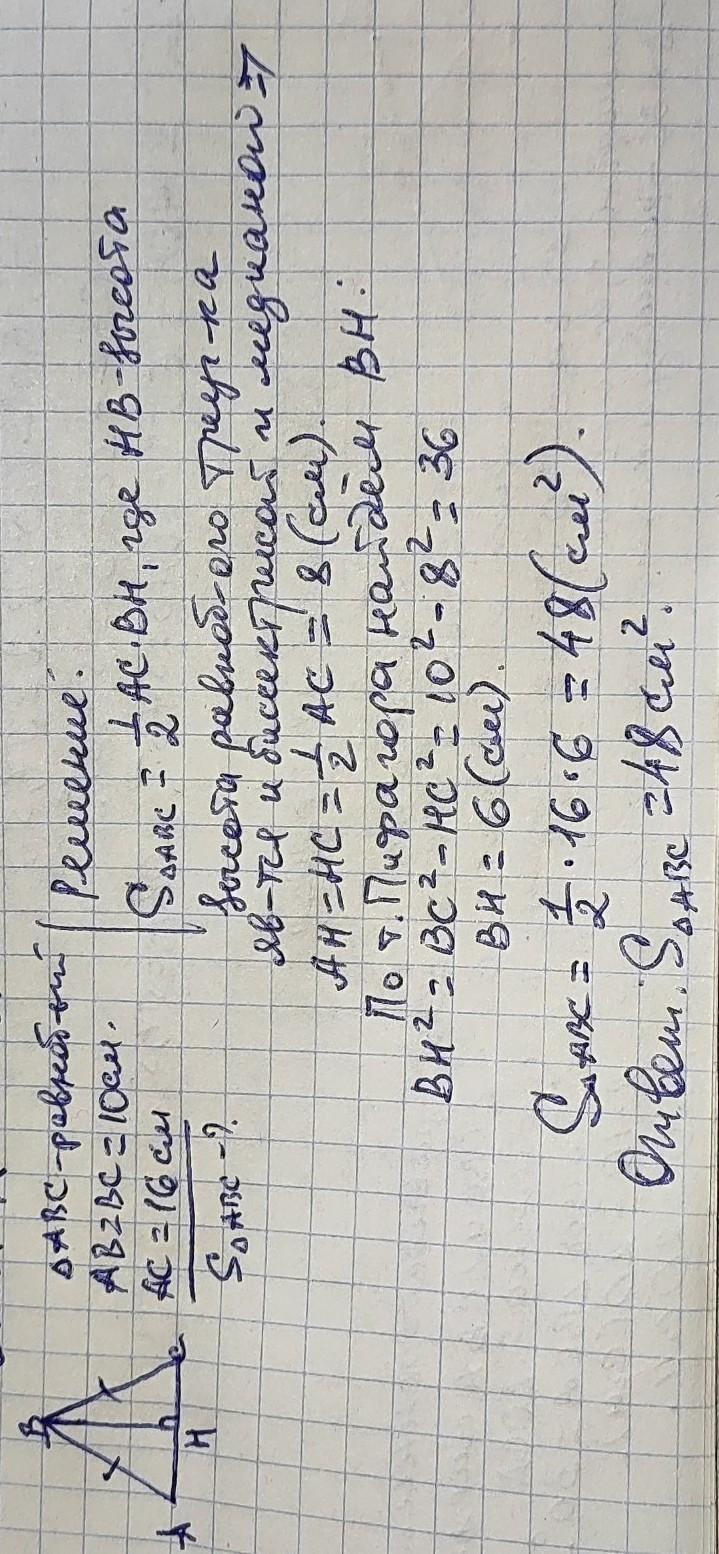 B
A
H
C
ΔABC-равноб-ый
AB=BC=10см.
AC=16 см
SΔABC-?
Решение:
SΔABC = 1/2 AC·BH, где HB-высота
Высота равноб-ого треуг-ка
яв-тся и биссектрисой и медианой =>
AH=HC=1/2 AC = 8 (см).
По т. Пифагора найдём BH:
BH² = BC² - HC² = 10² - 8² = 36
BH = 6 (см).
SΔABC = 1/2 · 16 · 6 = 48 (см²).
Ответ: SΔABC = 48 см².